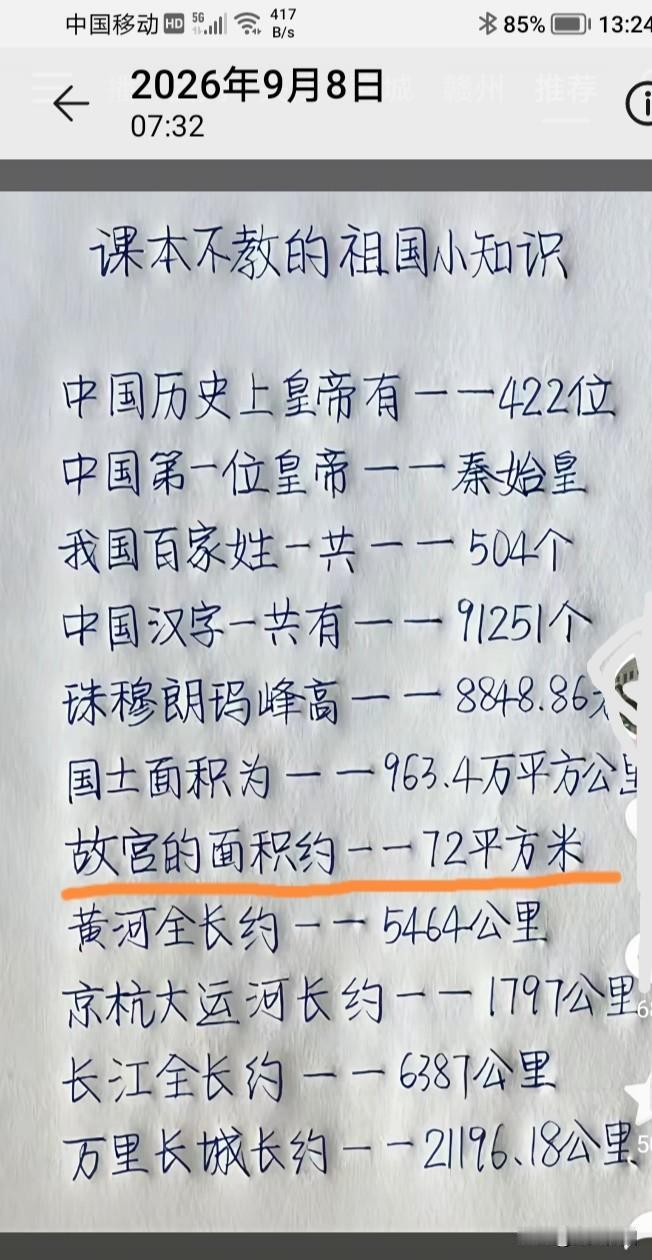 中国移动 HD 5G 417 B/s 85% 13:24
2026年9月8日
07:32
赣州 推荐
课本不教的祖国小知识
中国历史上皇帝有——422位
中国第一位皇帝——秦始皇
我国百家姓一共——504个
中国汉字一共有——91251个
珠穆朗玛峰高——8848.86
国土面积为——963.4万平方公里
故宫的面积约——72平方米
黄河全长约——5464公里
京杭大运河长约——1797公里
长江全长约——6387公里
万里长城长约——21196.18公里